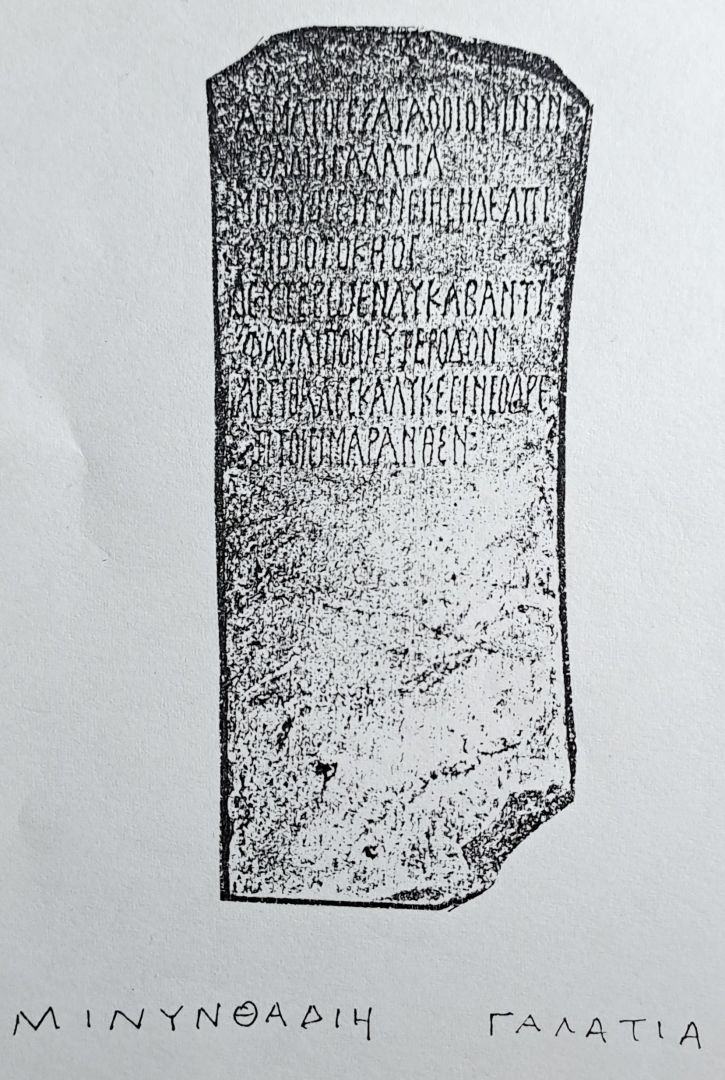 ΑΙΜΑΤΟϹΕΞΑΓΑΘΟΙΟΜΙΝΥΝ
ΘΑΔΙΗΓΑΛΑΤΙΑ
ΜΗΤΡΟϹΕΥΓΕΝΕΙΗϹΗΔΕΛΠΙ
ΔΙΟΙΟΤΟΚΗΟϹ
ΔΕΥΤΕΡΩΕΝΛΥΚΑΒΑΝΤΙ
ΦΑΟϹΛΙΠΟΝΗΥΤΕΡΟΔΩΝ
ΑΡΤΙΘΑΛΕϹΚΑΛΥΚΕϹΙΝΕΟΔΡΕ
ΠΤΟΙϹΙΜΑΡΑΝΘΕΝ
ΜΙΝΥΝΘΑΔΙΗ ΓΑΛΑΤΙΑ